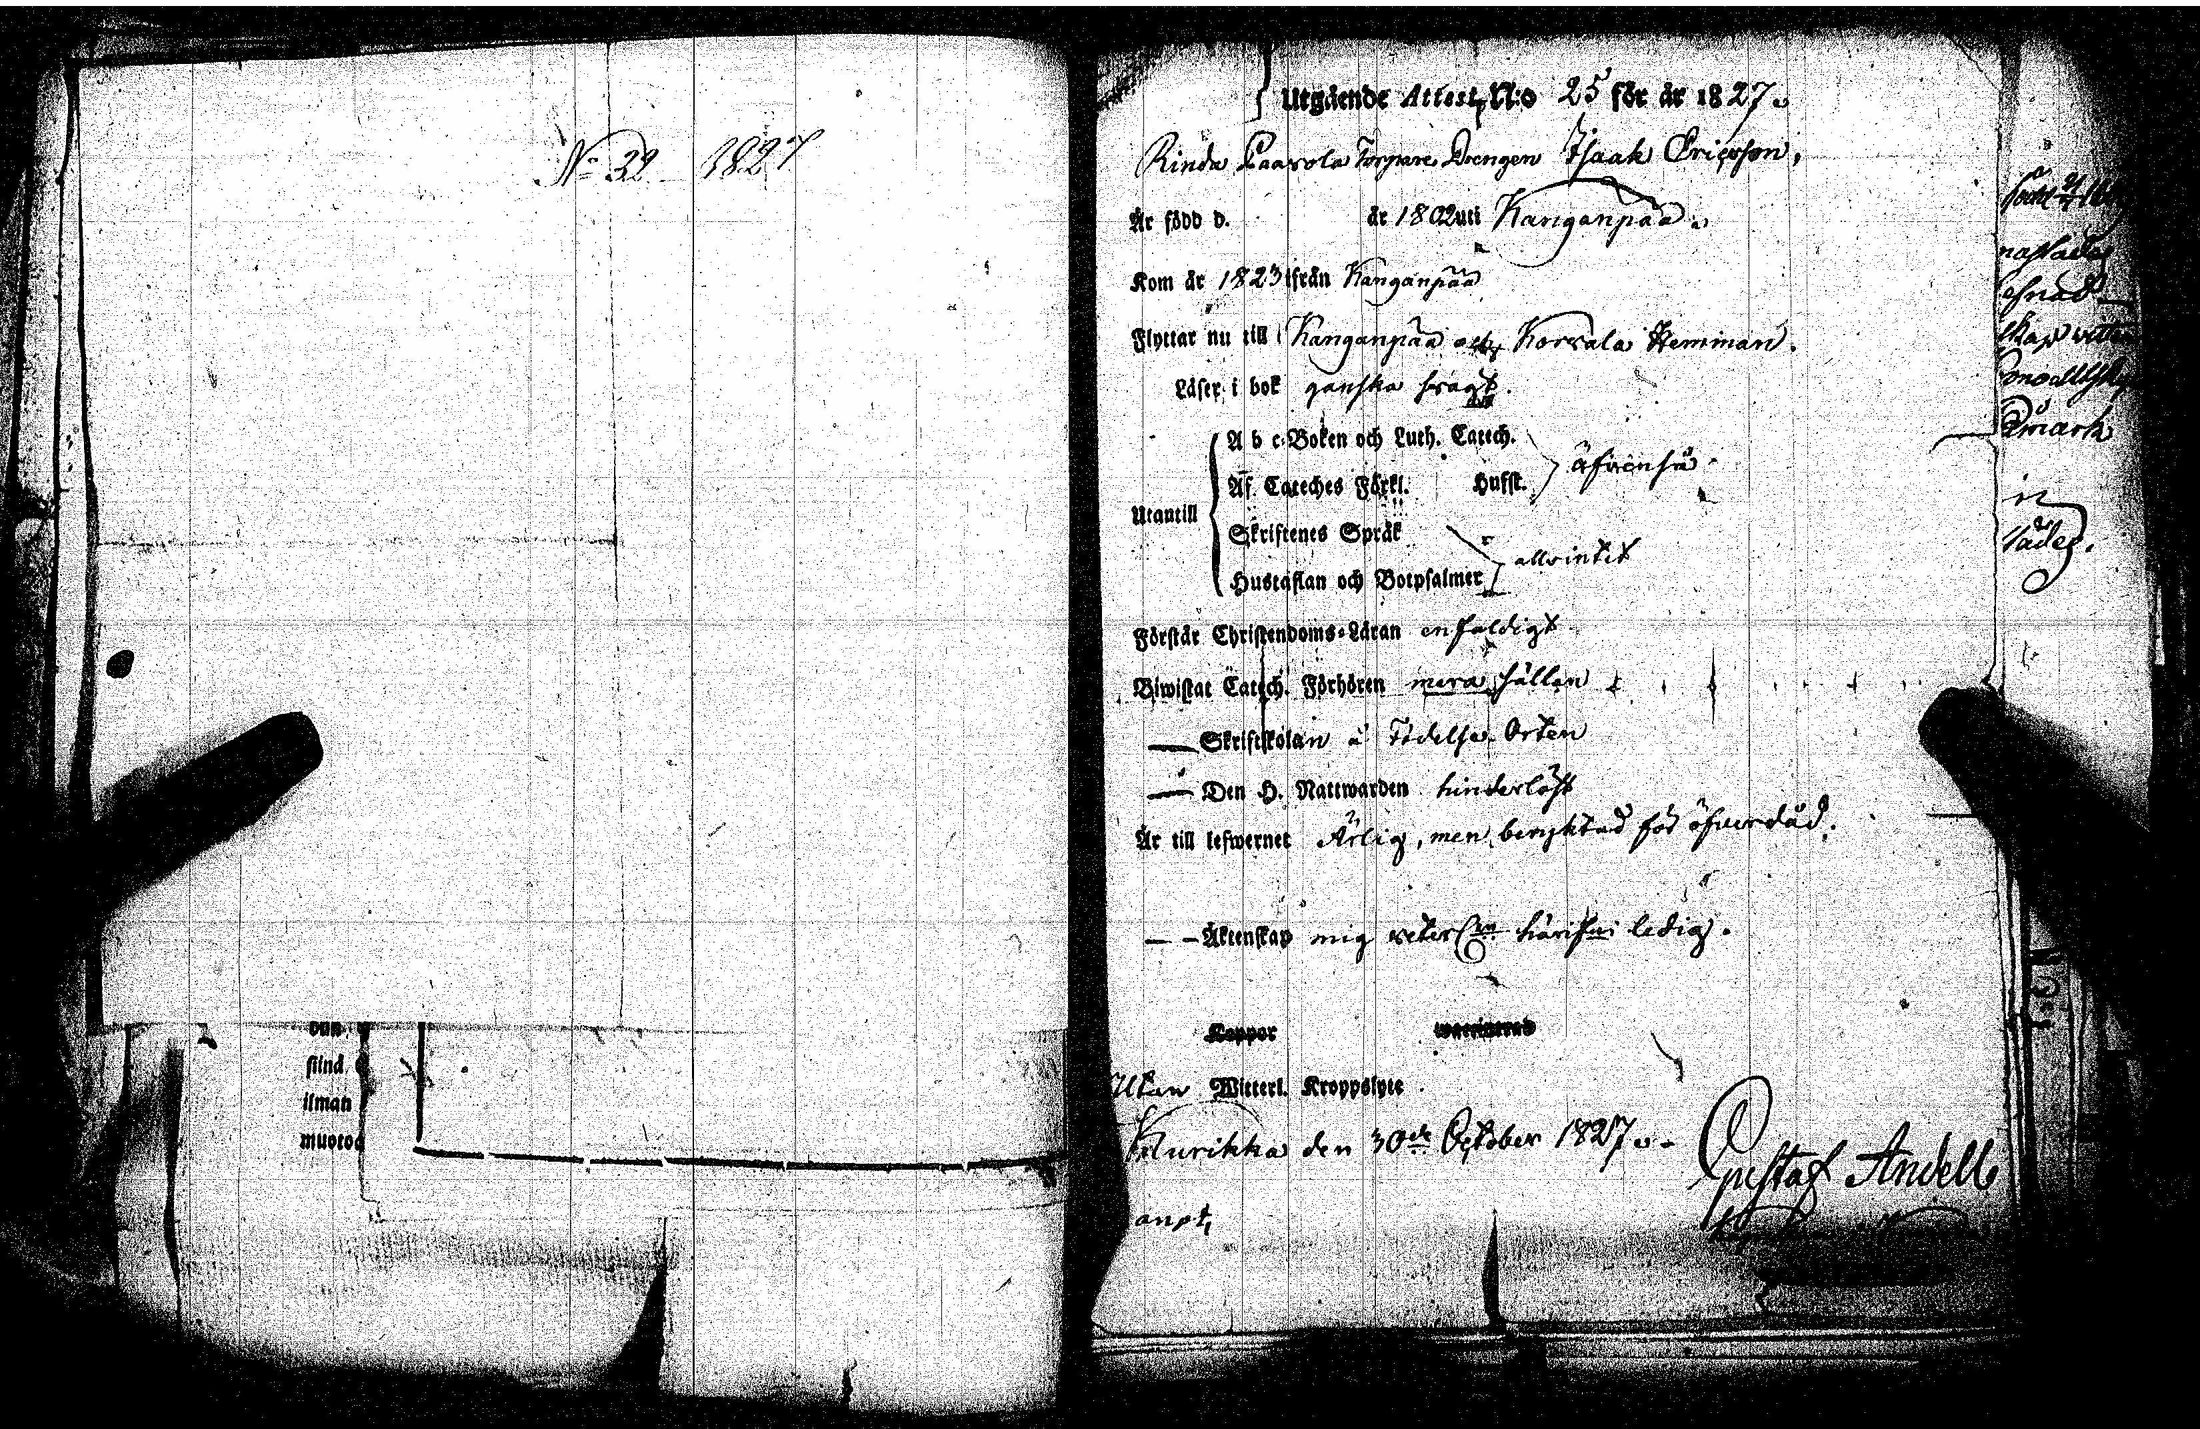 No 32 1827
siind
ilman
muotoa
Utgående Attest, N:o 25 för år 1827.
Rinda Laarola Torpare Drengen Isaak Ericsson,
År född d. år 1802 uti Kanganpää.
Kom år 1823 ifrån Kanganpää
Flyttar nu till Kanganpää och Korvala Hemman.
Läser i bok ganska svagt.
A b c-Boken och Luth. Catech.
Af Cateches Förkl. Hufst. äfvenså
Utantill
Skriftenes Språk
Hustaflan och Botpsalmer allsintet
Förstår Christendoms-Läran enfaldigt
Biwistat Catech. Förhören mera sällan
— Skriftskolan å Födelse Orten
— Den H. Nattwarden hinderlöst
År till lefwernet Ärlig, men beryktad för öfverdåd.
— — Äktenskap mig veterl. härifrån ledig.
Koppor
Utan Witterl. Kroppslyte
Kurikka den 30de October 1827.
Gustaf Andell
anpt,